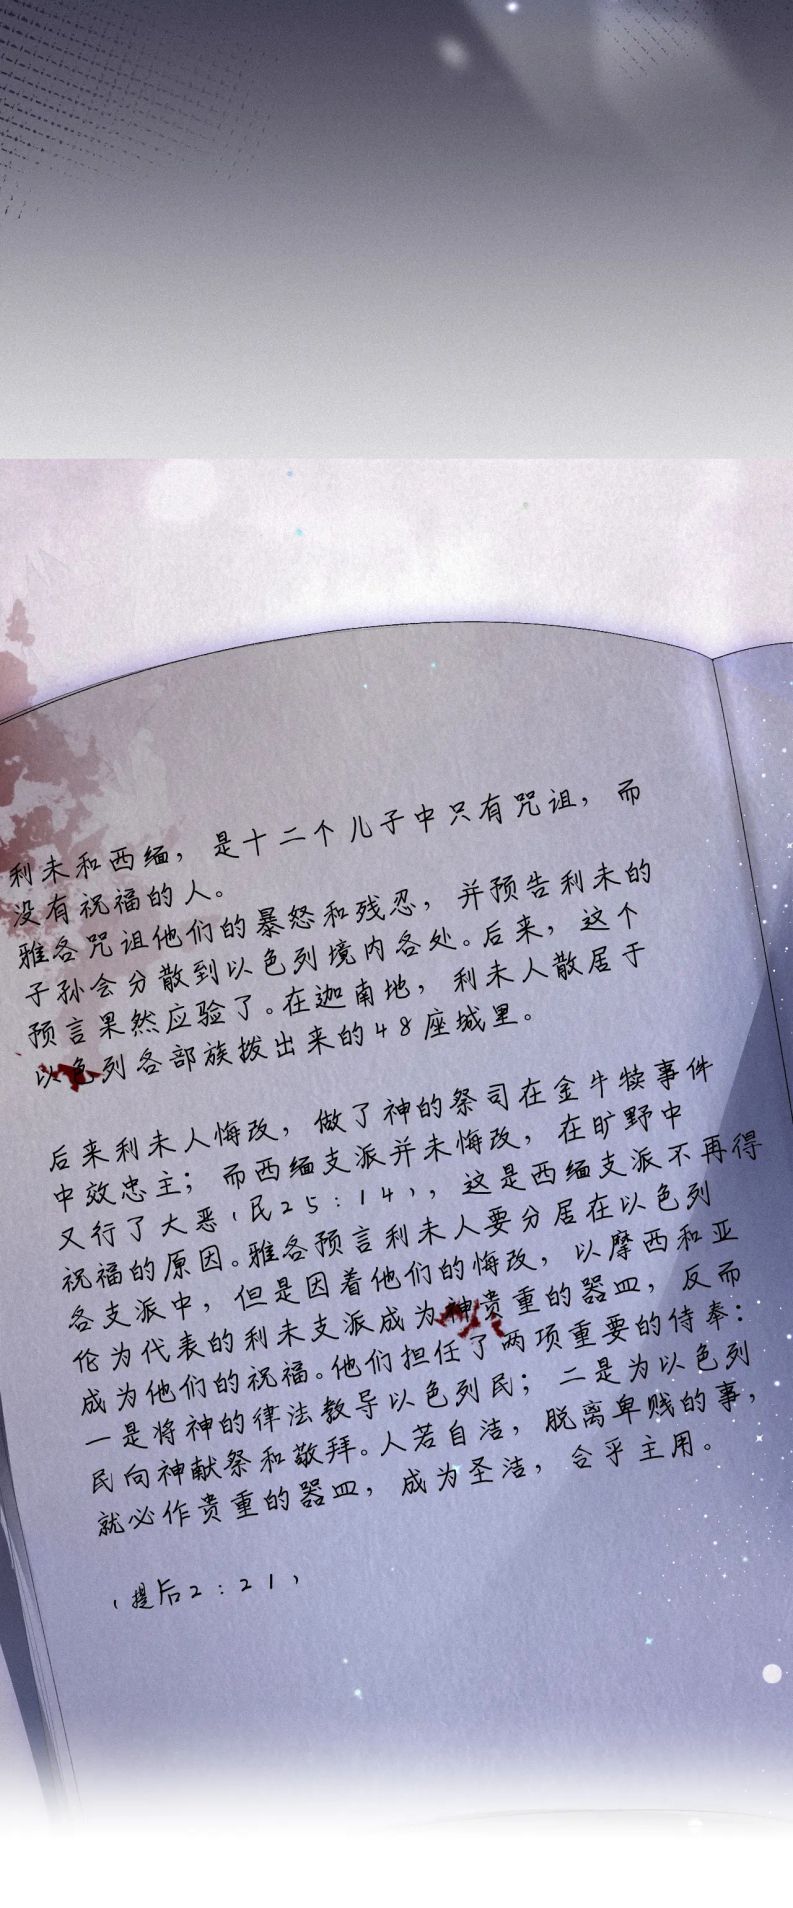 利未和西缅，是十二个儿子中只有咒诅，而
没有祝福的人。
雅各咒诅他们的暴怒和残忍，并预告利未的
子孙会分散到以色列境内各处。后来，这个
预言果然应验了。在迦南地，利未人散居于
以色列各部族拨出来的48座城里。
后来利未人悔改，做了神的祭司在金牛犊事件
中效忠主；而西缅支派并未悔改，在旷野中
又行了大恶（民25：14），这是西缅支派不再得
祝福的原因。雅各预言利未人要分居在以色列
各支派中，但是因着他们的悔改，以摩西和亚
伦为代表的利未支派成为神贵重的器皿，反而
成为他们的祝福。他们担任了两项重要的侍奉：
一是将神的律法教导以色列民；二是为以色列
民向神献祭和敬拜。人若自洁，脱离卑贱的事，
就必作贵重的器皿，成为圣洁，合乎主用。
（提后2：21）